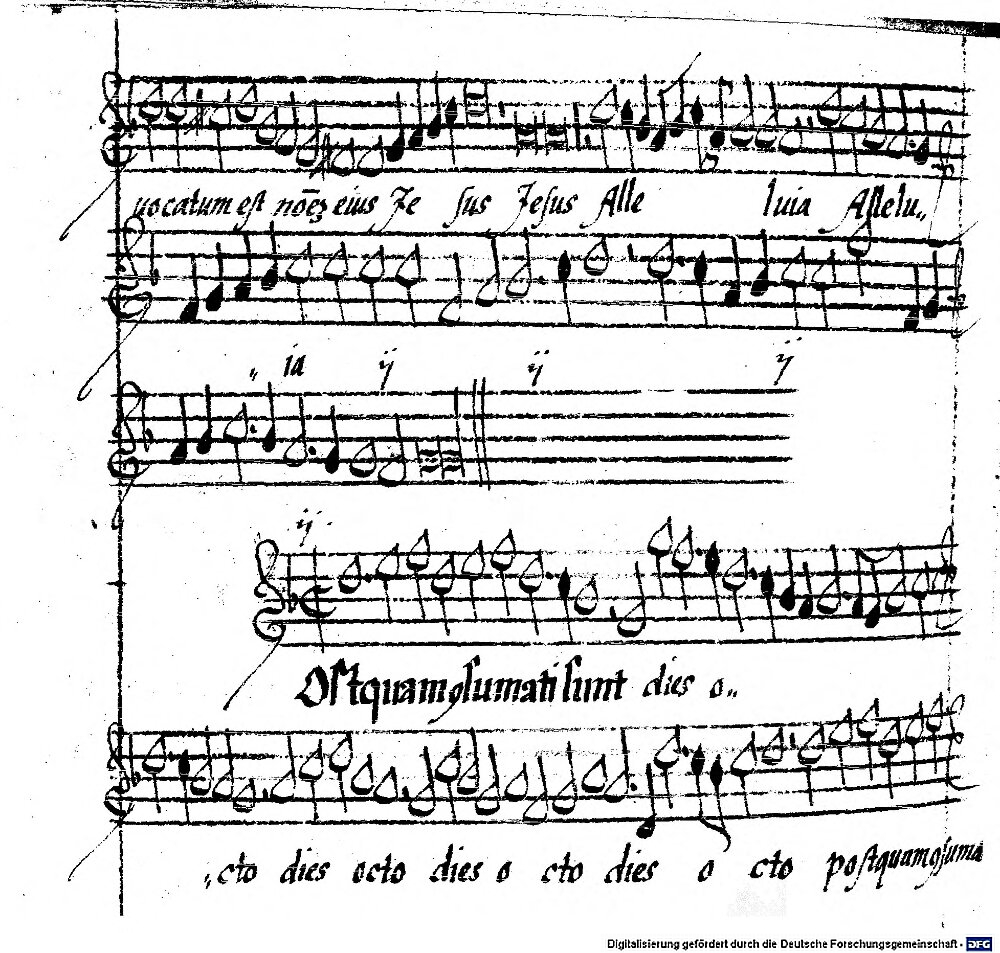 vocatum est nōēȝ eius Je sus Jesus Alle luia Allelu„
„ ia ij ij ij
ij.
Ostquamꝯsumati sunt dies o„
„cto dies octo dies o cto dies o cto postquamꝯsuma
Digitalisierung gefördert durch die Deutsche Forschungsgemeinschaft - DFG